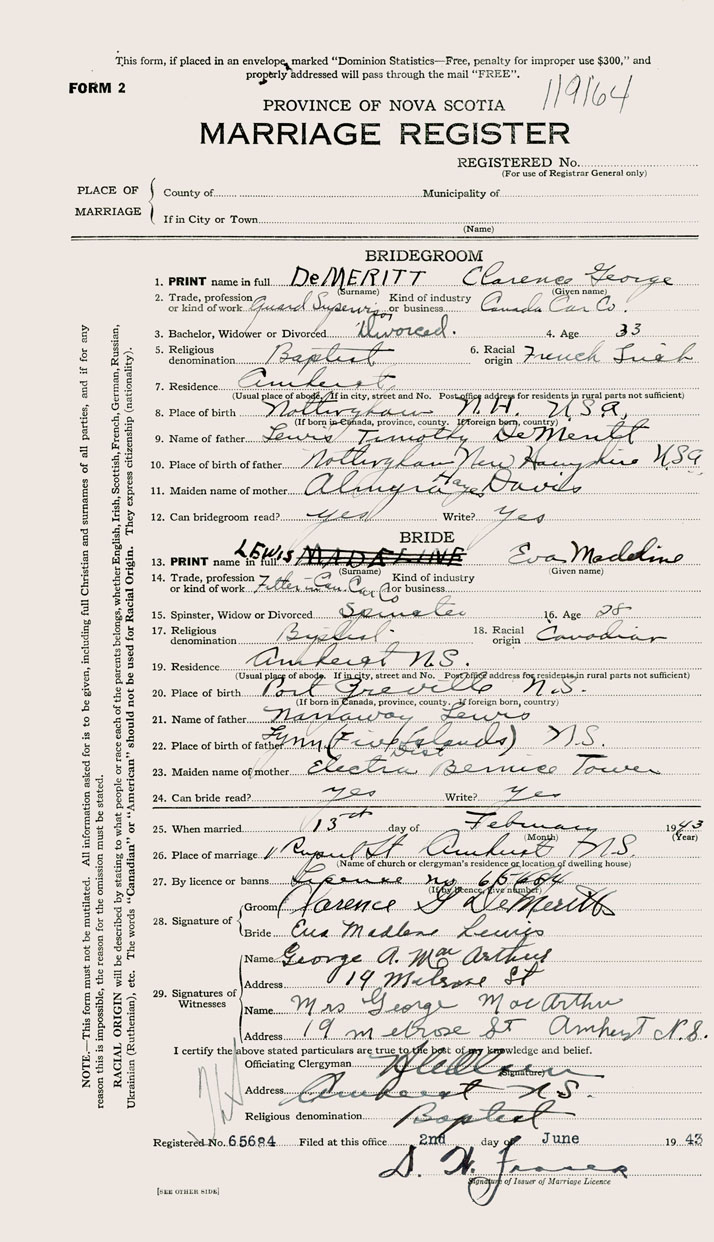 This form, if placed in an envelope, marked "Dominion Statistics—Free, penalty for improper use $300," and
properly addressed will pass through the mail "FREE".
FORM 2
119164
PROVINCE OF NOVA SCOTIA
MARRIAGE REGISTER
REGISTERED No.
(For use of Registrar General only)
PLACE OF MARRIAGE
County of Municipality of
If in City or Town
(Name)
BRIDEGROOM
1. PRINT name in full DeMERITT Clarence George
(Surname) (Given name)
2. Trade, profession or kind of work Guard Supervisor Kind of industry or business Canada Car Co.
3. Bachelor, Widower or Divorced Divorced. 4. Age 33
5. Religious denomination Baptist 6. Racial origin French Irish
7. Residence Amherst
(Usual place of abode. If in city, street and No. Post office address for residents in rural parts not sufficient)
8. Place of birth Nottingham N.H. USA,
(If born in Canada, province, county. If foreign born, country)
9. Name of father Lewis Timothy DeMeritt
10. Place of birth of father Nottingham New Hampshire USA,
11. Maiden name of mother Almyra Hayes Davis
12. Can bridegroom read? yes Write? Yes
BRIDE
13. PRINT name in full LEWIS MADELINE Eva Madeline
(Surname) (Given name)
14. Trade, profession or kind of work Fitter-Can. Car Co Kind of industry or business
15. Spinster, Widow or Divorced Spinster 16. Age 28
17. Religious denomination Baptist 18. Racial origin Canadian
19. Residence Amherst N.S.
(Usual place of abode. If in city, street and No. Post office address for residents in rural parts not sufficient)
20. Place of birth Port Greville N.S.
(If born in Canada, province, county. If foreign born, country)
21. Name of father Nanaway Lewis
22. Place of birth of father Lynn (Five Islands) Dist N.S.
23. Maiden name of mother Electra Bernice Tower
24. Can bride read? yes Write? Yes
25. When married 13th day of February 1943
(Month) (Year)
26. Place of marriage Rupert St Amherst N.S.
(Name of church or clergyman's residence or location of dwelling house)
27. By licence or banns License no 65684
(If by licence, give number)
28. Signature of
Groom Clarence G DeMeritt
Bride Eva Madlene Lewis
29. Signatures of Witnesses
Name George A. MacArthur
Address 19 Melrose St
Name Mrs George MacArthur
Address 19 melrose St Amherst N.S.
I certify the above stated particulars are true to the best of my knowledge and belief.
Officiating Clergyman
(Signature)
Address Amherst N.S.
Religious denomination Baptist
Registered No. 65684 Filed at this office 2nd day of June 1943
D. H. Fraser
Signature of Issuer of Marriage Licence
[SEE OTHER SIDE]
NOTE.—This form must not be mutilated. All information asked for is to be given, including full Christian and surnames of all parties, and if for any
reason this is impossible, the reason for the omission must be stated.
RACIAL ORIGIN will be described by stating to what people or race each of the parents belongs, whether English, Irish, Scottish, French, German, Russian,
Ukrainian (Ruthenian), etc. The words "Canadian" or "American" should not be used for Racial Origin. They express citizenship (nationality).